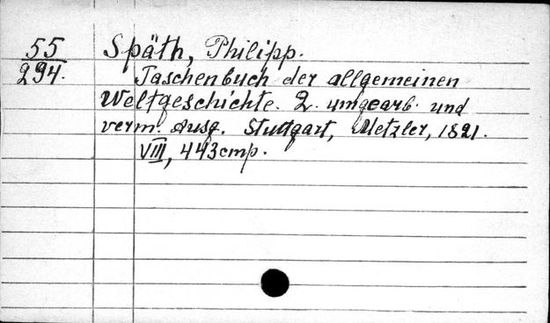 55 Späth, Philipp.
294. Taschenbuch der allgemeinen
Weltgeschichte. 2. umgearb. und
verm. Ausg. Stuttgart, Metzler, 1821.
VIII, 443 cmp.